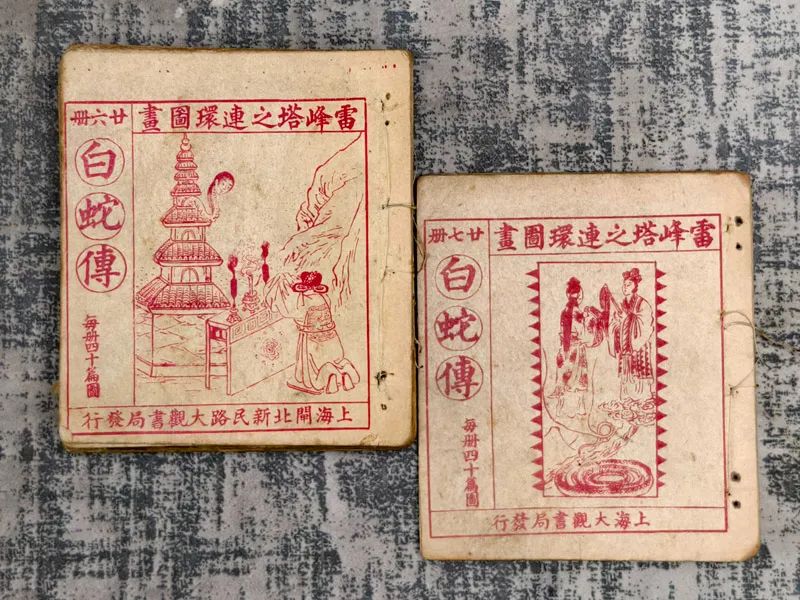 雷峰塔之連環圖畫
廿六册
白蛇傳
每册四十篇圖
上海閘北新民路大觀書局發行
雷峰塔之連環圖畫
廿七册
白蛇傳
每册四十篇圖
上海大觀書局發行